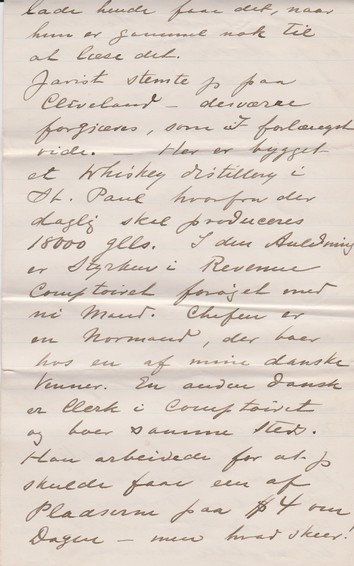 lade hende faae det, naar
hun er gammel nok til
at læse det.
Javist stemte jeg paa
Cleveland – desværre
forgjæves, som I forlængst
vide. Her er bygget
et Whiskey distillery i
St. Paul hvorfra der
daglig skal produceres
18000 glls. I den Anledning
er Styrken i Revenue
Comptoiret forøget med
ni Mand. Chefen er
en Normand, der boer
hos en af mine danske
Venner. En anden Dansk
er Clerk i Comptoiret
og boer samme Sted.
Han arbeidede for at jeg
skulde faae een af
Pladserne paa $4 om
Dagen – men hvad skeer!